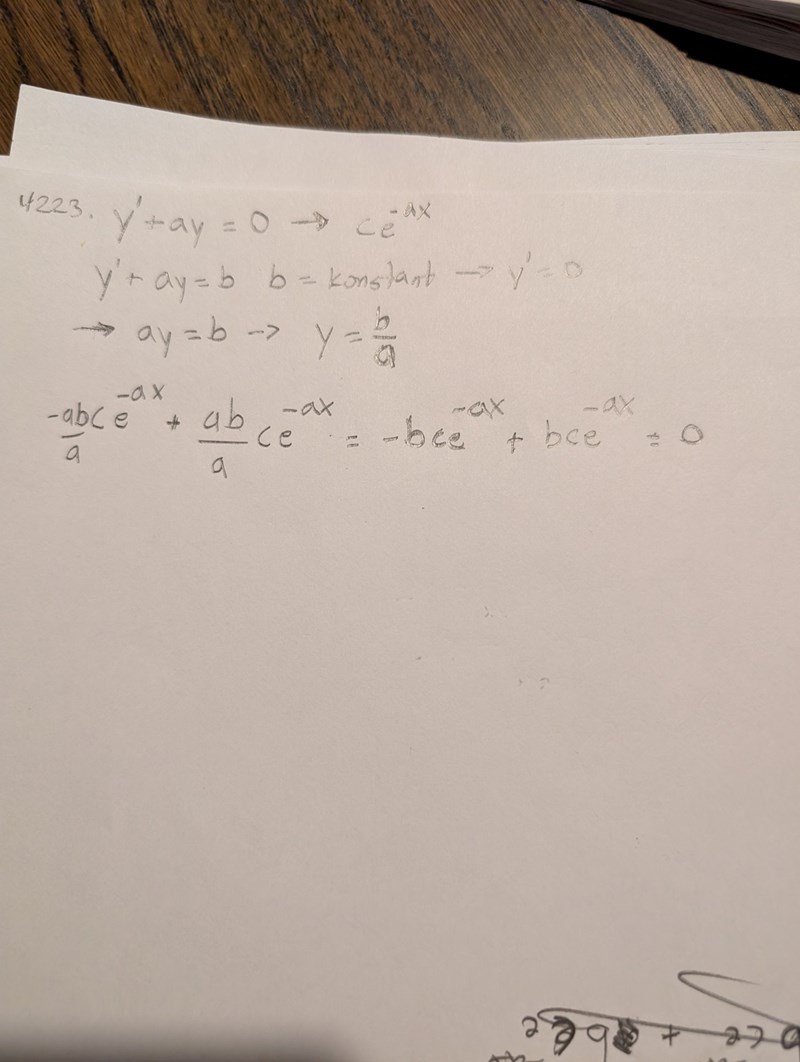 4223. y' + ay = 0 → ce^{-ax}
y' + ay = b b = konstant → y' = 0
→ ay = b → y = \frac{b}{a}
\frac{-ab}{a}ce^{-ax} + \frac{ab}{a}ce^{-ax} = -bce^{-ax} + bce^{-ax} = 0